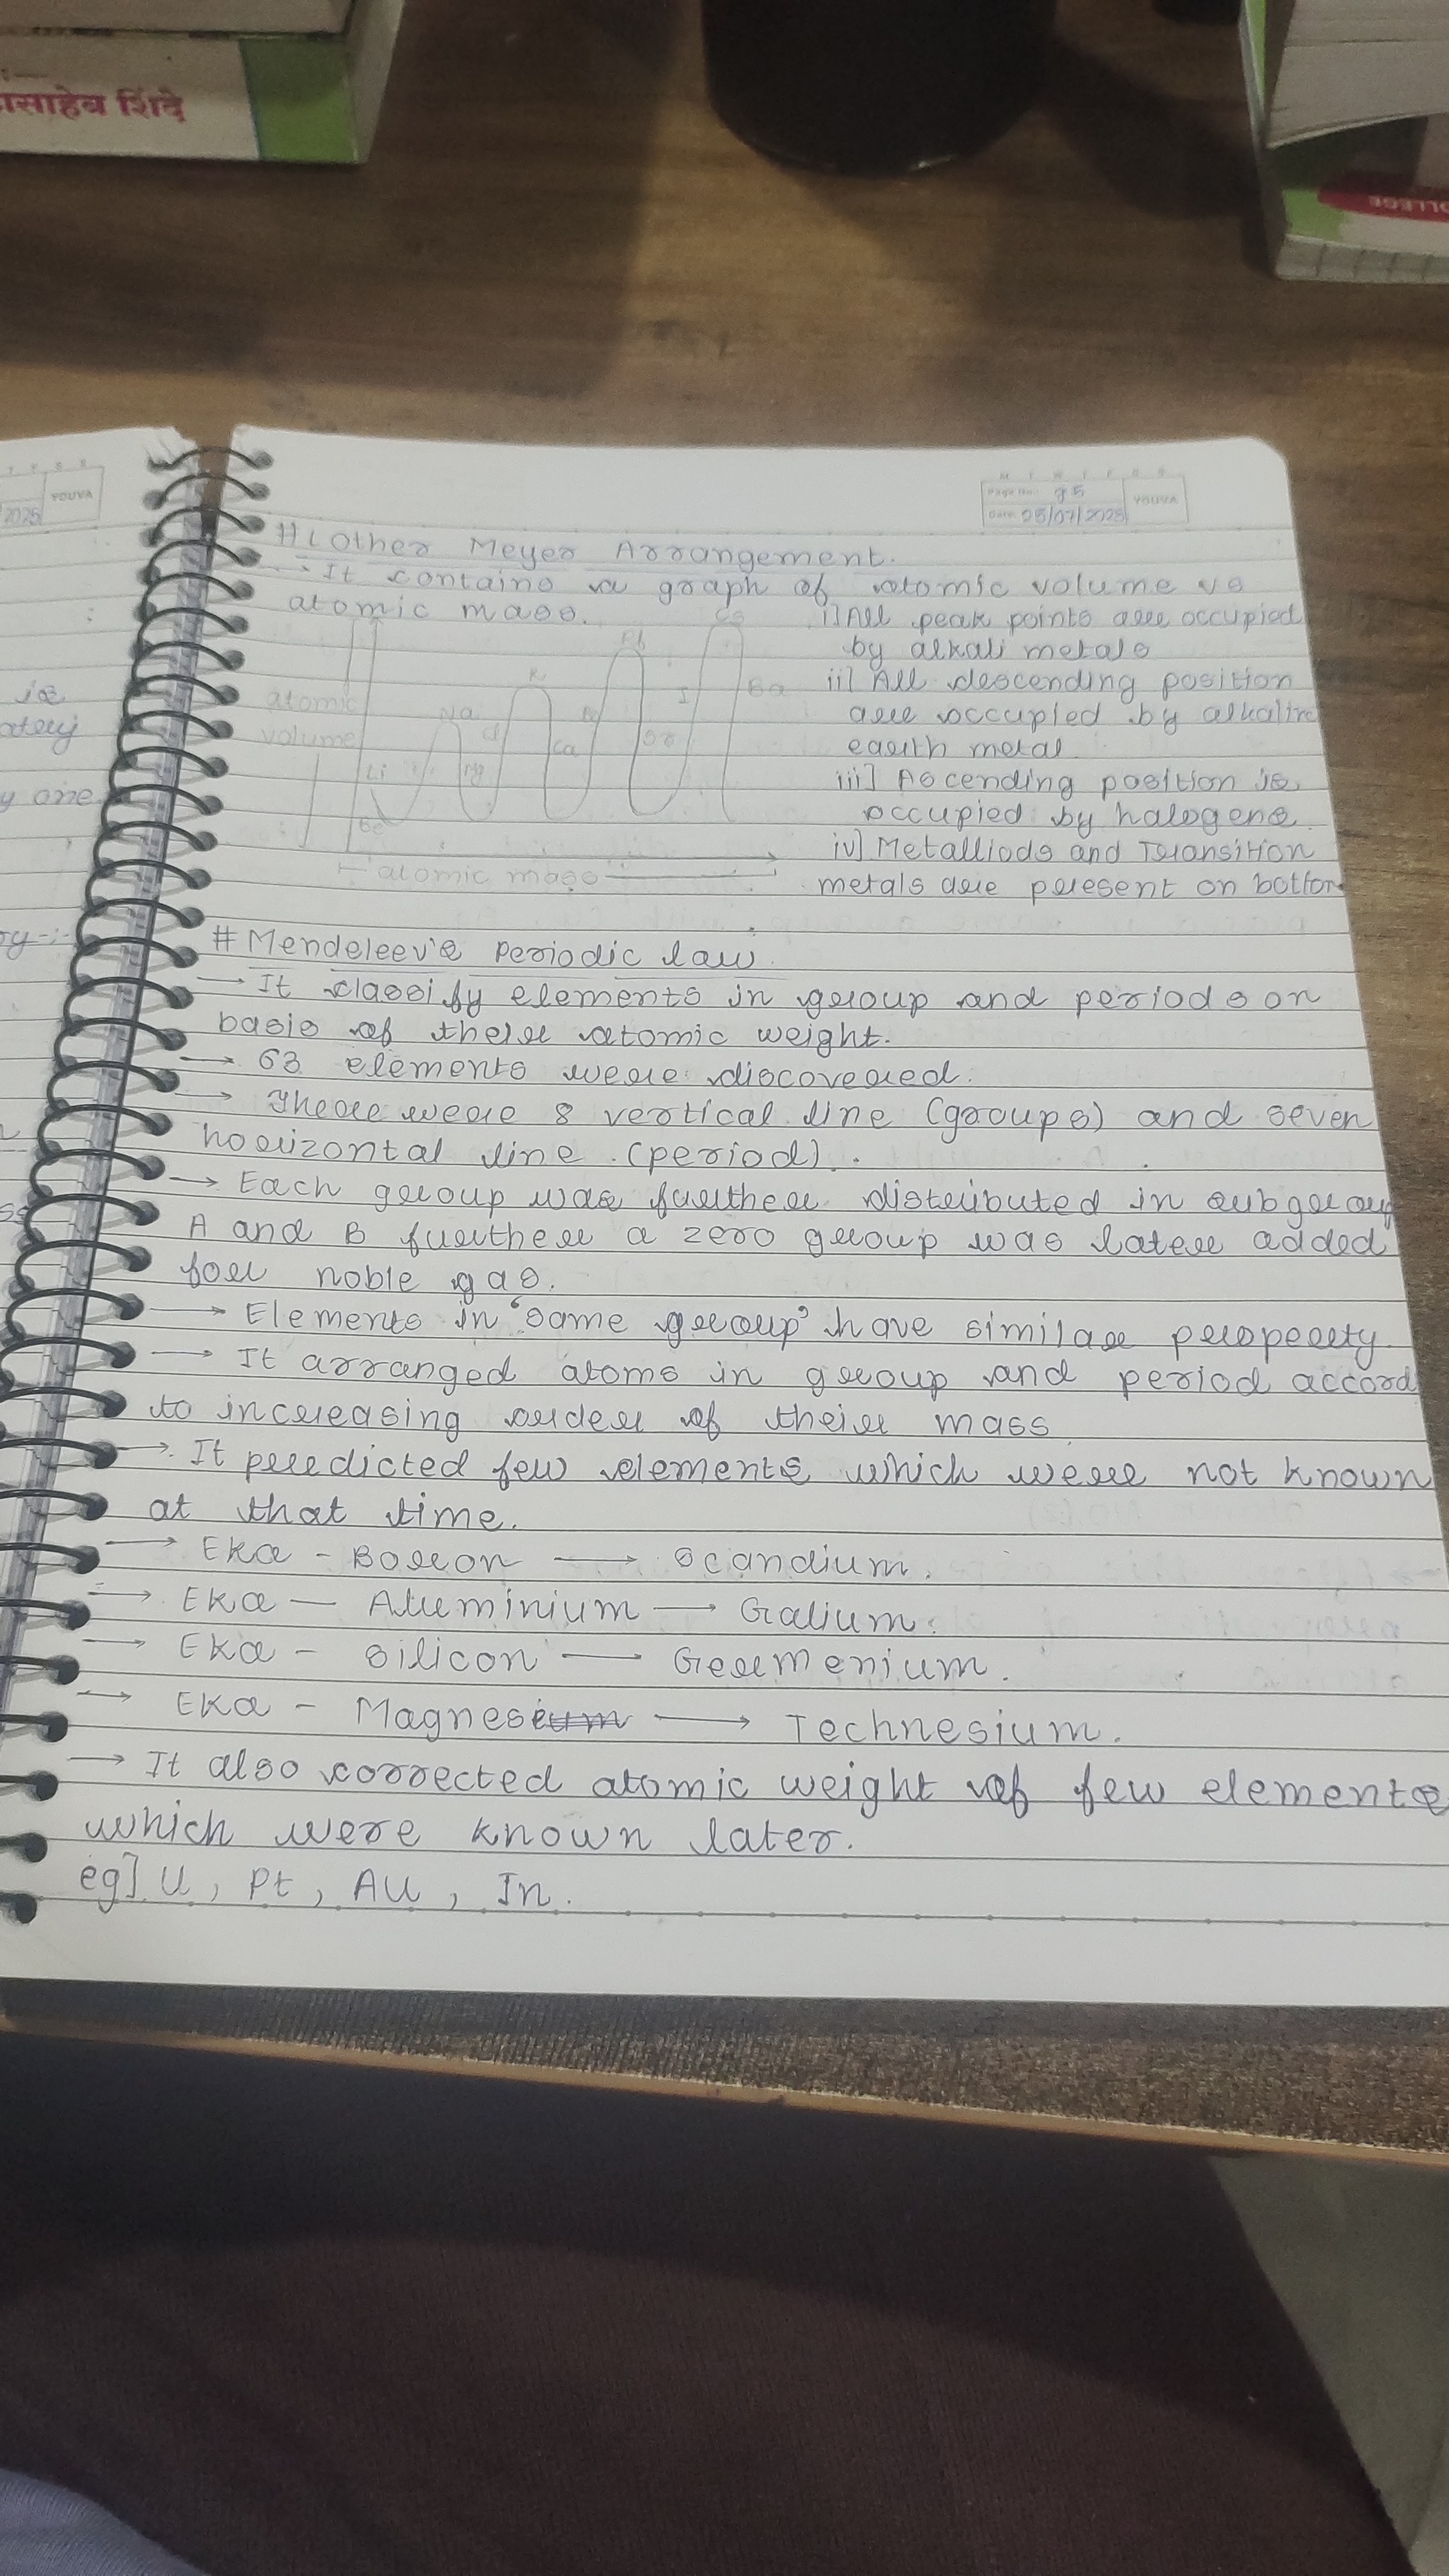 ासाहेब शिंदे
OLLEGE
YOUVA
2025
Page No.: 95
Date: 05/07/2025
YOUVA
# Lother Meyer Arrangement.
It contains a graph of atomic volume vs
atomic mass.
i] All peak points are occupied
by alkali metals
ii] All descending position
are occupied by alkaline
earth metal
iii] Ascending position is
occupied by halogens
iv] Metalliods and Transition
metals are present on bottom
atomic
volume
Li
Be
Na
Mg
Cl
K
Ca
Rb
Sr
I
Cs
Ba
atomic mass
is
ately
y one
# Mendeleev's Periodic law.
→ It classify elements in group and periods on
basis of there atomic weight.
→ 63 elements were discovered.
→ There were 8 vertical line (groups) and seven
horizontal line (period).
→ Each group was further distributed in subgroup
A and B further a zero group was later added
for noble gas.
→ Elements in 'same group' have similar property
→ It arranged atoms in group and period accord
to increasing order of their mass
→ It predicted few elements which were not known
at that time.
→ Eka - Boron → Scandium.
→ Eka — Aluminium → Galium.
→ Eka - Silicon → Germenium.
→ Eka - Magnes → Technesium.
→ It also corrected atomic weight of few elements
which were known later.
eg] U, Pt, AU, In.